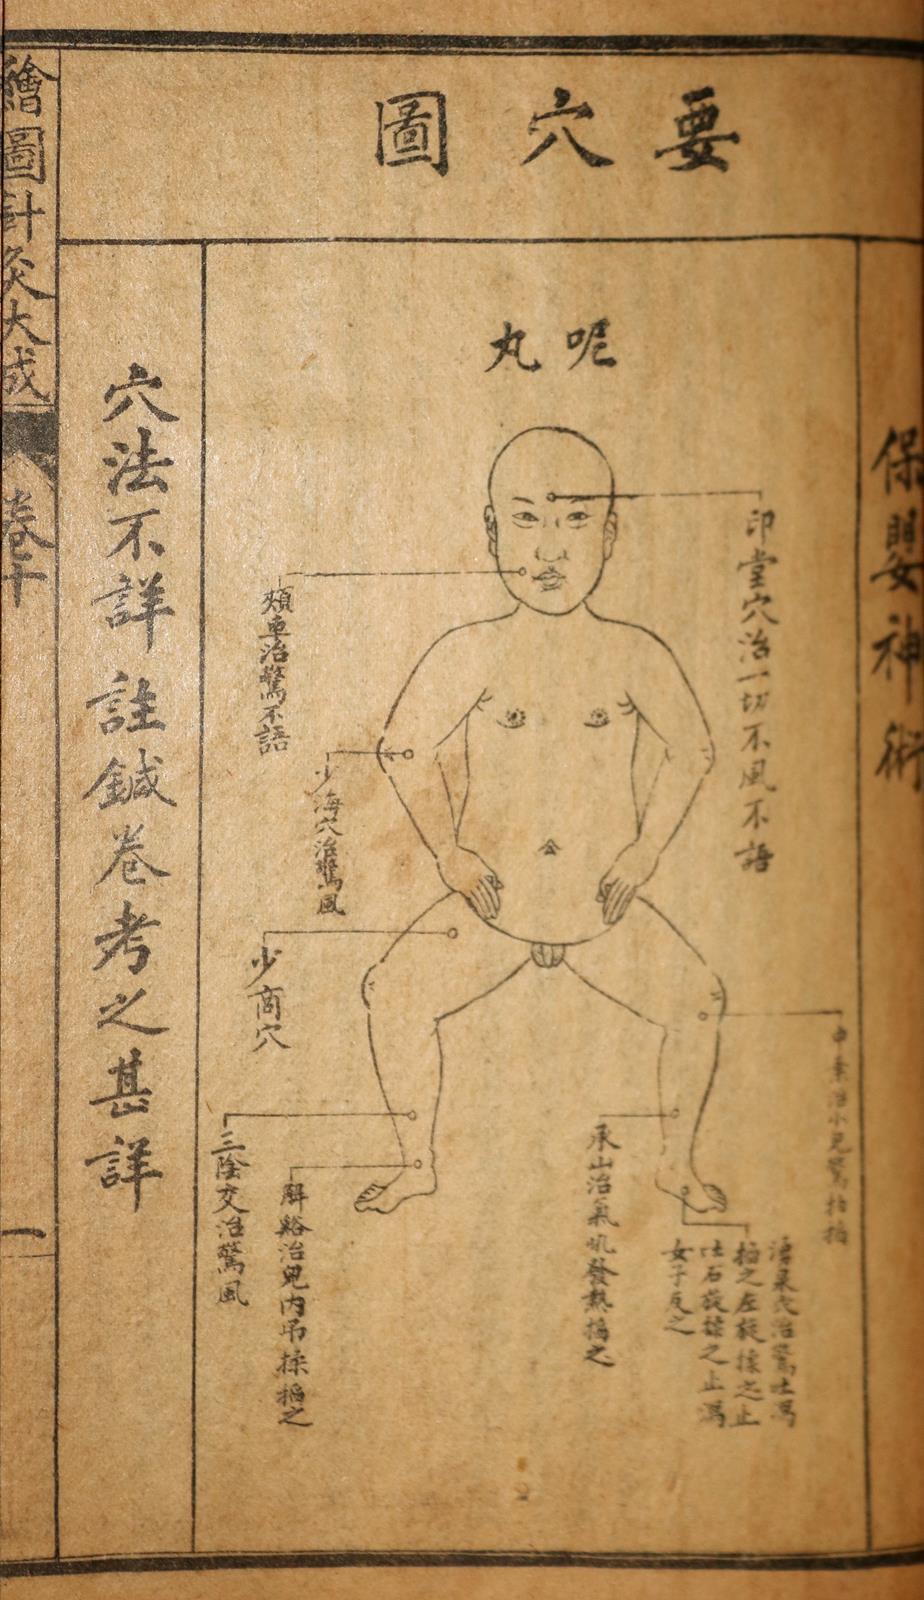 保嬰神術
要穴圖
呢丸
印堂穴治一切不風不語
頰車治驚不語
少海穴治驚風
少商穴
治小兒驚掐揉
治驚吐瀉
掐之左旋揉之止
吐右旋揉之止瀉
女子反之
承山治氣吼發熱掐之
解谿治兒內吊揉掐之
三陰交治驚風
穴法不詳註鍼卷考之甚詳
繪圖針灸大成
卷十
一